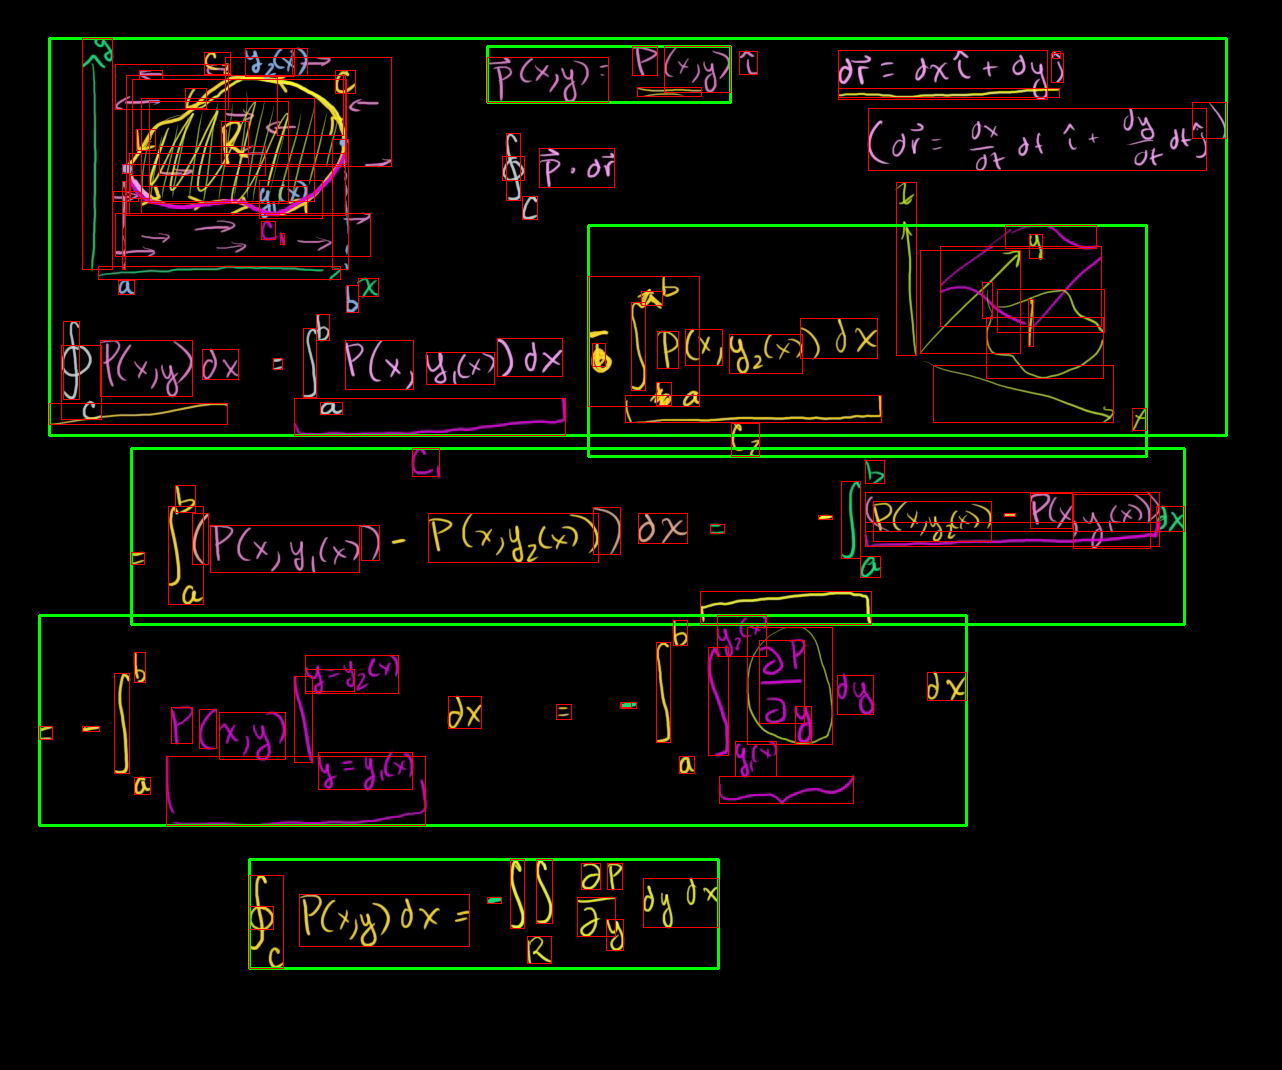 y C₂ y₂(x) C
R
y₁(x)
C₁
a b x
P⃗(x,y) = P(x,y) î
dr⃗ = dx î + dy ĵ
(dr⃗ = dx/dt dt î + dy/dt dt ĵ)
∮_C P⃗ · dr⃗
z y x
∮_C P(x,y) dx = ∫_a^b P(x, y₁(x)) dx + ∫_b^a P(x, y₂(x)) dx
C₁ C₂
= ∫_a^b (P(x, y₁(x)) - P(x, y₂(x))) dx = - ∫_a^b (P(x, y₂(x)) - P(x, y₁(x))) dx
= - ∫_a^b P(x,y) |_{y = y₁(x)}^{y = y₂(x)} dx = - ∫_a^b ∫_{y₁(x)}^{y₂(x)} ∂P/∂y dy dx
∮_C P(x,y) dx = - ∫∫_R ∂P/∂y dy dx